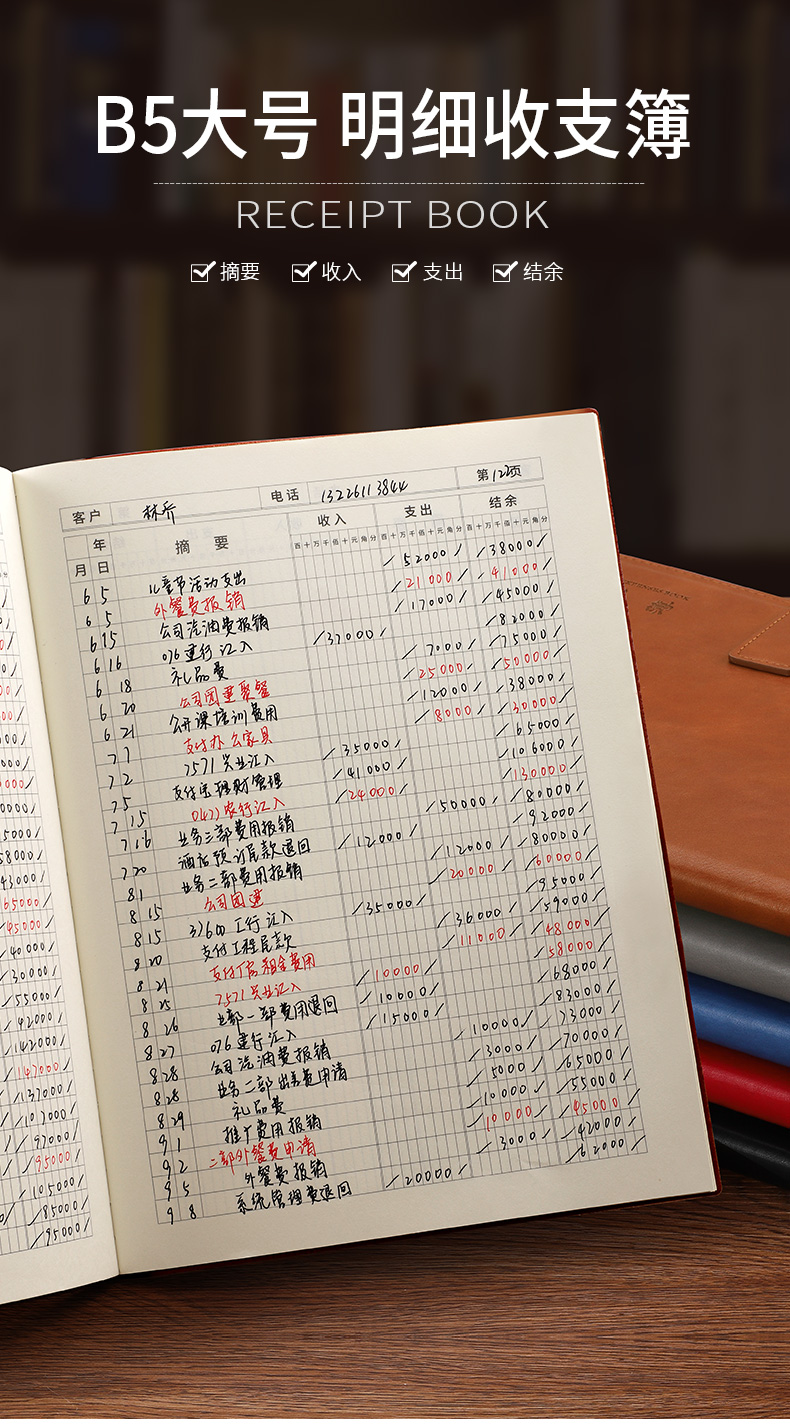 B5大号 明细收支簿
RECEIPT BOOK
摘要 收入 支出 结余
客户 林乔 电话 13226113844 第122页
年 摘要 收入 支出 结余
月 日 百十万千佰十元角分 百十万千佰十元角分 百十万千佰十元角分
6 5 儿童节活动支出 /52000/ /38000/
6 5 外餐费报销 /21000/ /41000/
6 15 公司汽油费报销 /17000/ /45000/
6 16 076建行汇入 /37000/ /82000/
6 18 礼品费 /7000/ /75000/
6 20 公司团建聚餐 /25000/ /50000/
6 21 公开课培训费用 /12000/ /38000/
7 1 支付办公家具 /8000/ /30000/
7 2 7571兴业汇入 /35000/ /65000/
7 5 支付宝理财管理 /41000/ /106000/
7 15 0477农行汇入 /24000/ /130000/
7 16 业务三部费用报销 /50000/ /80000/
7 20 酒店预订尾款退回 /12000/ /92000/
8 1 业务二部费用报销 /12000/ /80000/
8 15 公司团建 /20000/ /60000/
8 15 31600工行汇入 /35000/ /95000/
8 20 支付工程尾款 /36000/ /59000/
8 21 支付厂房租金费用 /11000/ /48000/
8 25 7571兴业汇入 /10000/ /58000/
8 26 业部一部费用退回 /10000/ /68000/
8 27 076建行汇入 /15000/ /83000/
8 28 公司汽油费报销 /10000/ /73000/
8 28 业务二部出差费申请 /3000/ /70000/
8 29 礼品费 /5000/ /65000/
9 1 推广费用报销 /10000/ /55000/
9 2 二部外餐费申请 /10000/ /45000/
9 5 外餐费报销 /3000/ /42000/
9 8 系统管理费退回 /20000/ /62000/